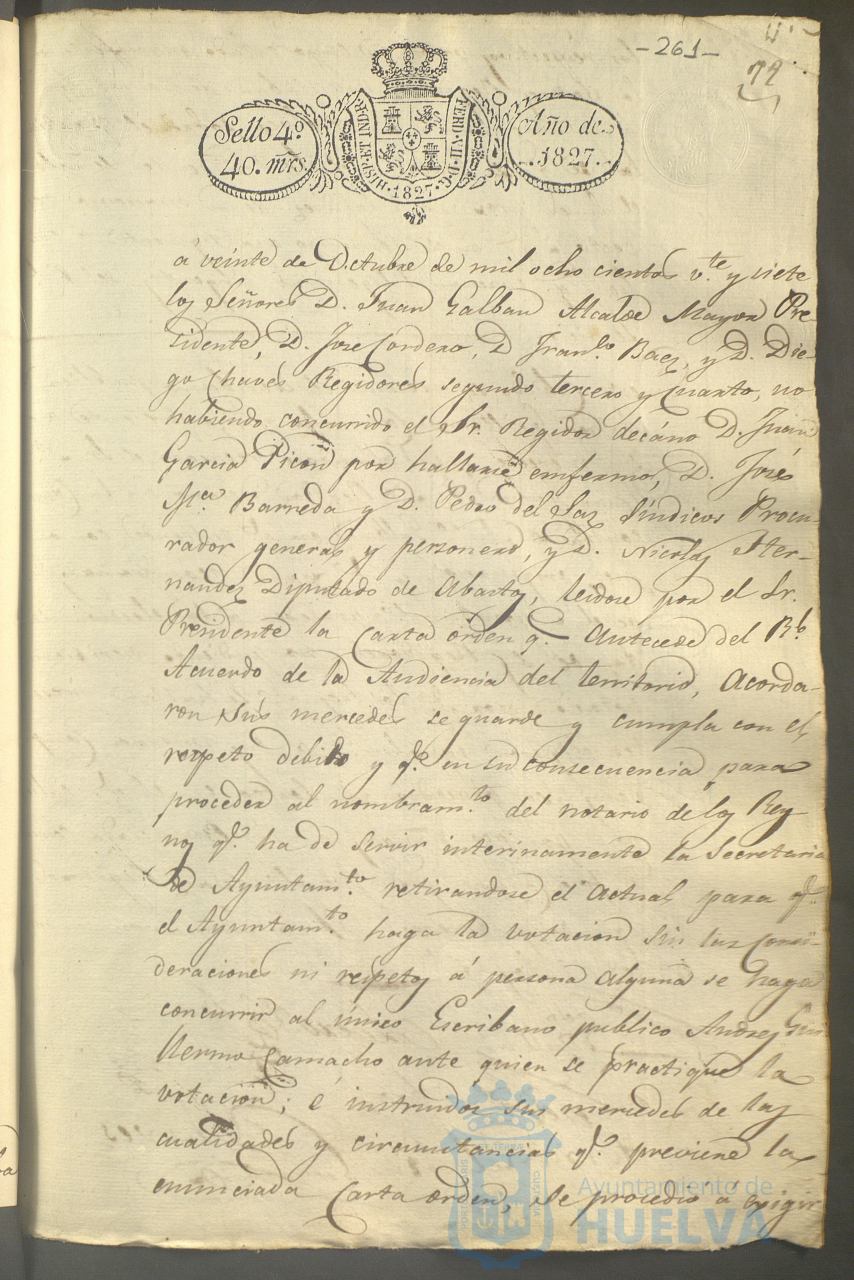 -261-
72
Sello 4º
40. mrs.
HISP. ET IND. R.
FERD. VII. D. G.
1827
Año de
1827.
á veinte de Octubre de mil ocho cientos v.te y siete
los Señores D. Juan Galban Alcalde Mayor Pre
sidente, D. Jose Cordero, D Fran.co Baez, y D. Die-
go Chaves Regidores segundo tercero y Cuarto, no
habiendo concurrido el Sr. Regidor decáno D. Juan
Garcia Picon por hallarse emfermo, D. José
M.a Barreda y D. Pedro del Saz Síndicos Procu-
rador general y personero, y D. Nicolas Her-
nandez Diputado de Abastos, leidose por el Sr.
Presidente la Carta órden q.e antecede del Rl.
Acuerdo de la Audiencia del territorio, Acorda-
ron sus mercedes se guarde y cumpla con el
respeto debido y q.e en su consecuencia para
proceder al nombram.to del notario de los Rey
nos q.e ha de servir interinamente la Secretaria
de Ayuntam.to retirandose el actual para q.e
el Ayuntam.to haga la votacion sin las consi-
deraciones ni respetos á persona alguna se haga
concurrir al único Escribano publico Andres Gui
llermo Camacho ante quien se practique la
votacion; é instruidos sus mercedes de las
cualidades y circunstancias q.e previene la
enunciada Carta orden, se procedió á exigir
Ayuntamiento de
HUELVA